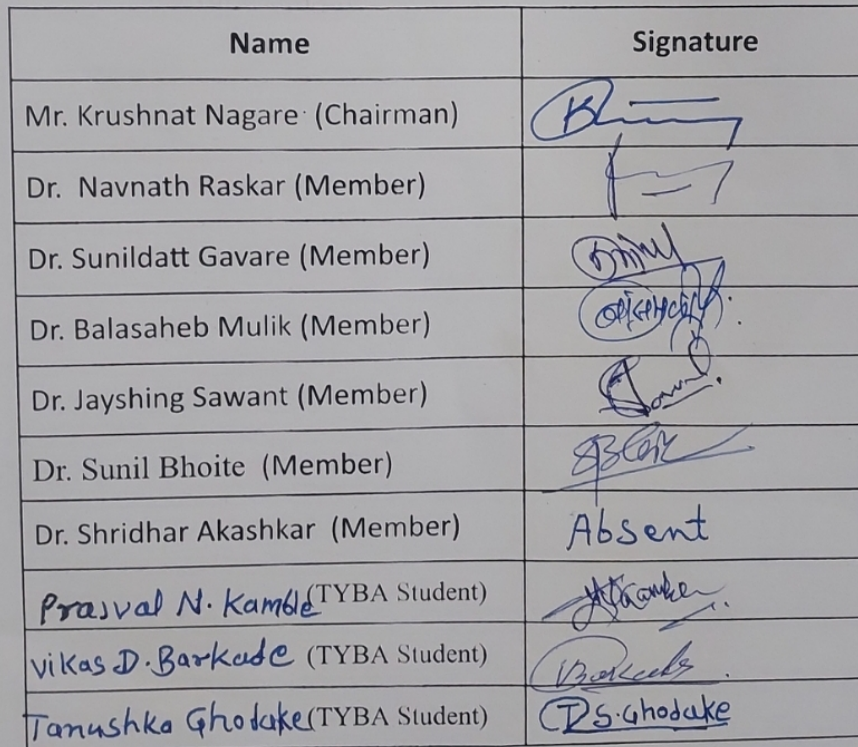 Name Signature
Mr. Krushnat Nagare (Chairman)
Dr. Navnath Raskar (Member)
Dr. Sunildatt Gavare (Member)
Dr. Balasaheb Mulik (Member)
Dr. Jayshing Sawant (Member)
Dr. Sunil Bhoite (Member)
Dr. Shridhar Akashkar (Member) Absent
Prasval N. Kamble (TYBA Student)
Vikas D. Barkade (TYBA Student)
Tanushka Ghodake (TYBA Student) T S. Ghodake